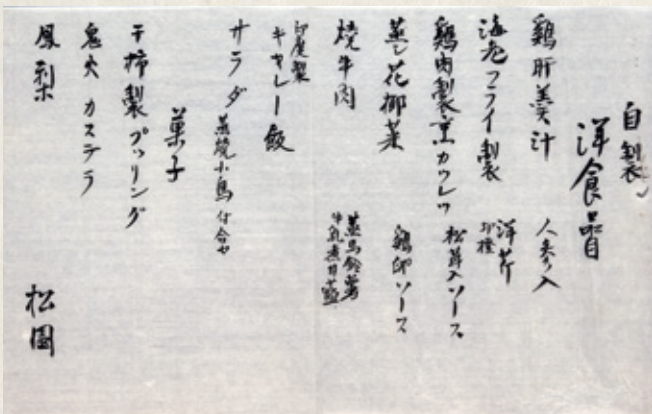 自製
洋食品目
鶏肝羹汁 人参入
海老フライ製 洋芹 檸檬
鶏肉製烹カツレツ 松茸入ソース
蒸し花椰菜 鶏卵ソース
焼牛肉 蒸馬鈴薯 牛乳煮甘藍
印度製
キャレー飯
サラダ 蒸焼小鳥付合せ
菓子
干柿製プッリング
鬼火 カステラ
鳳梨
松園